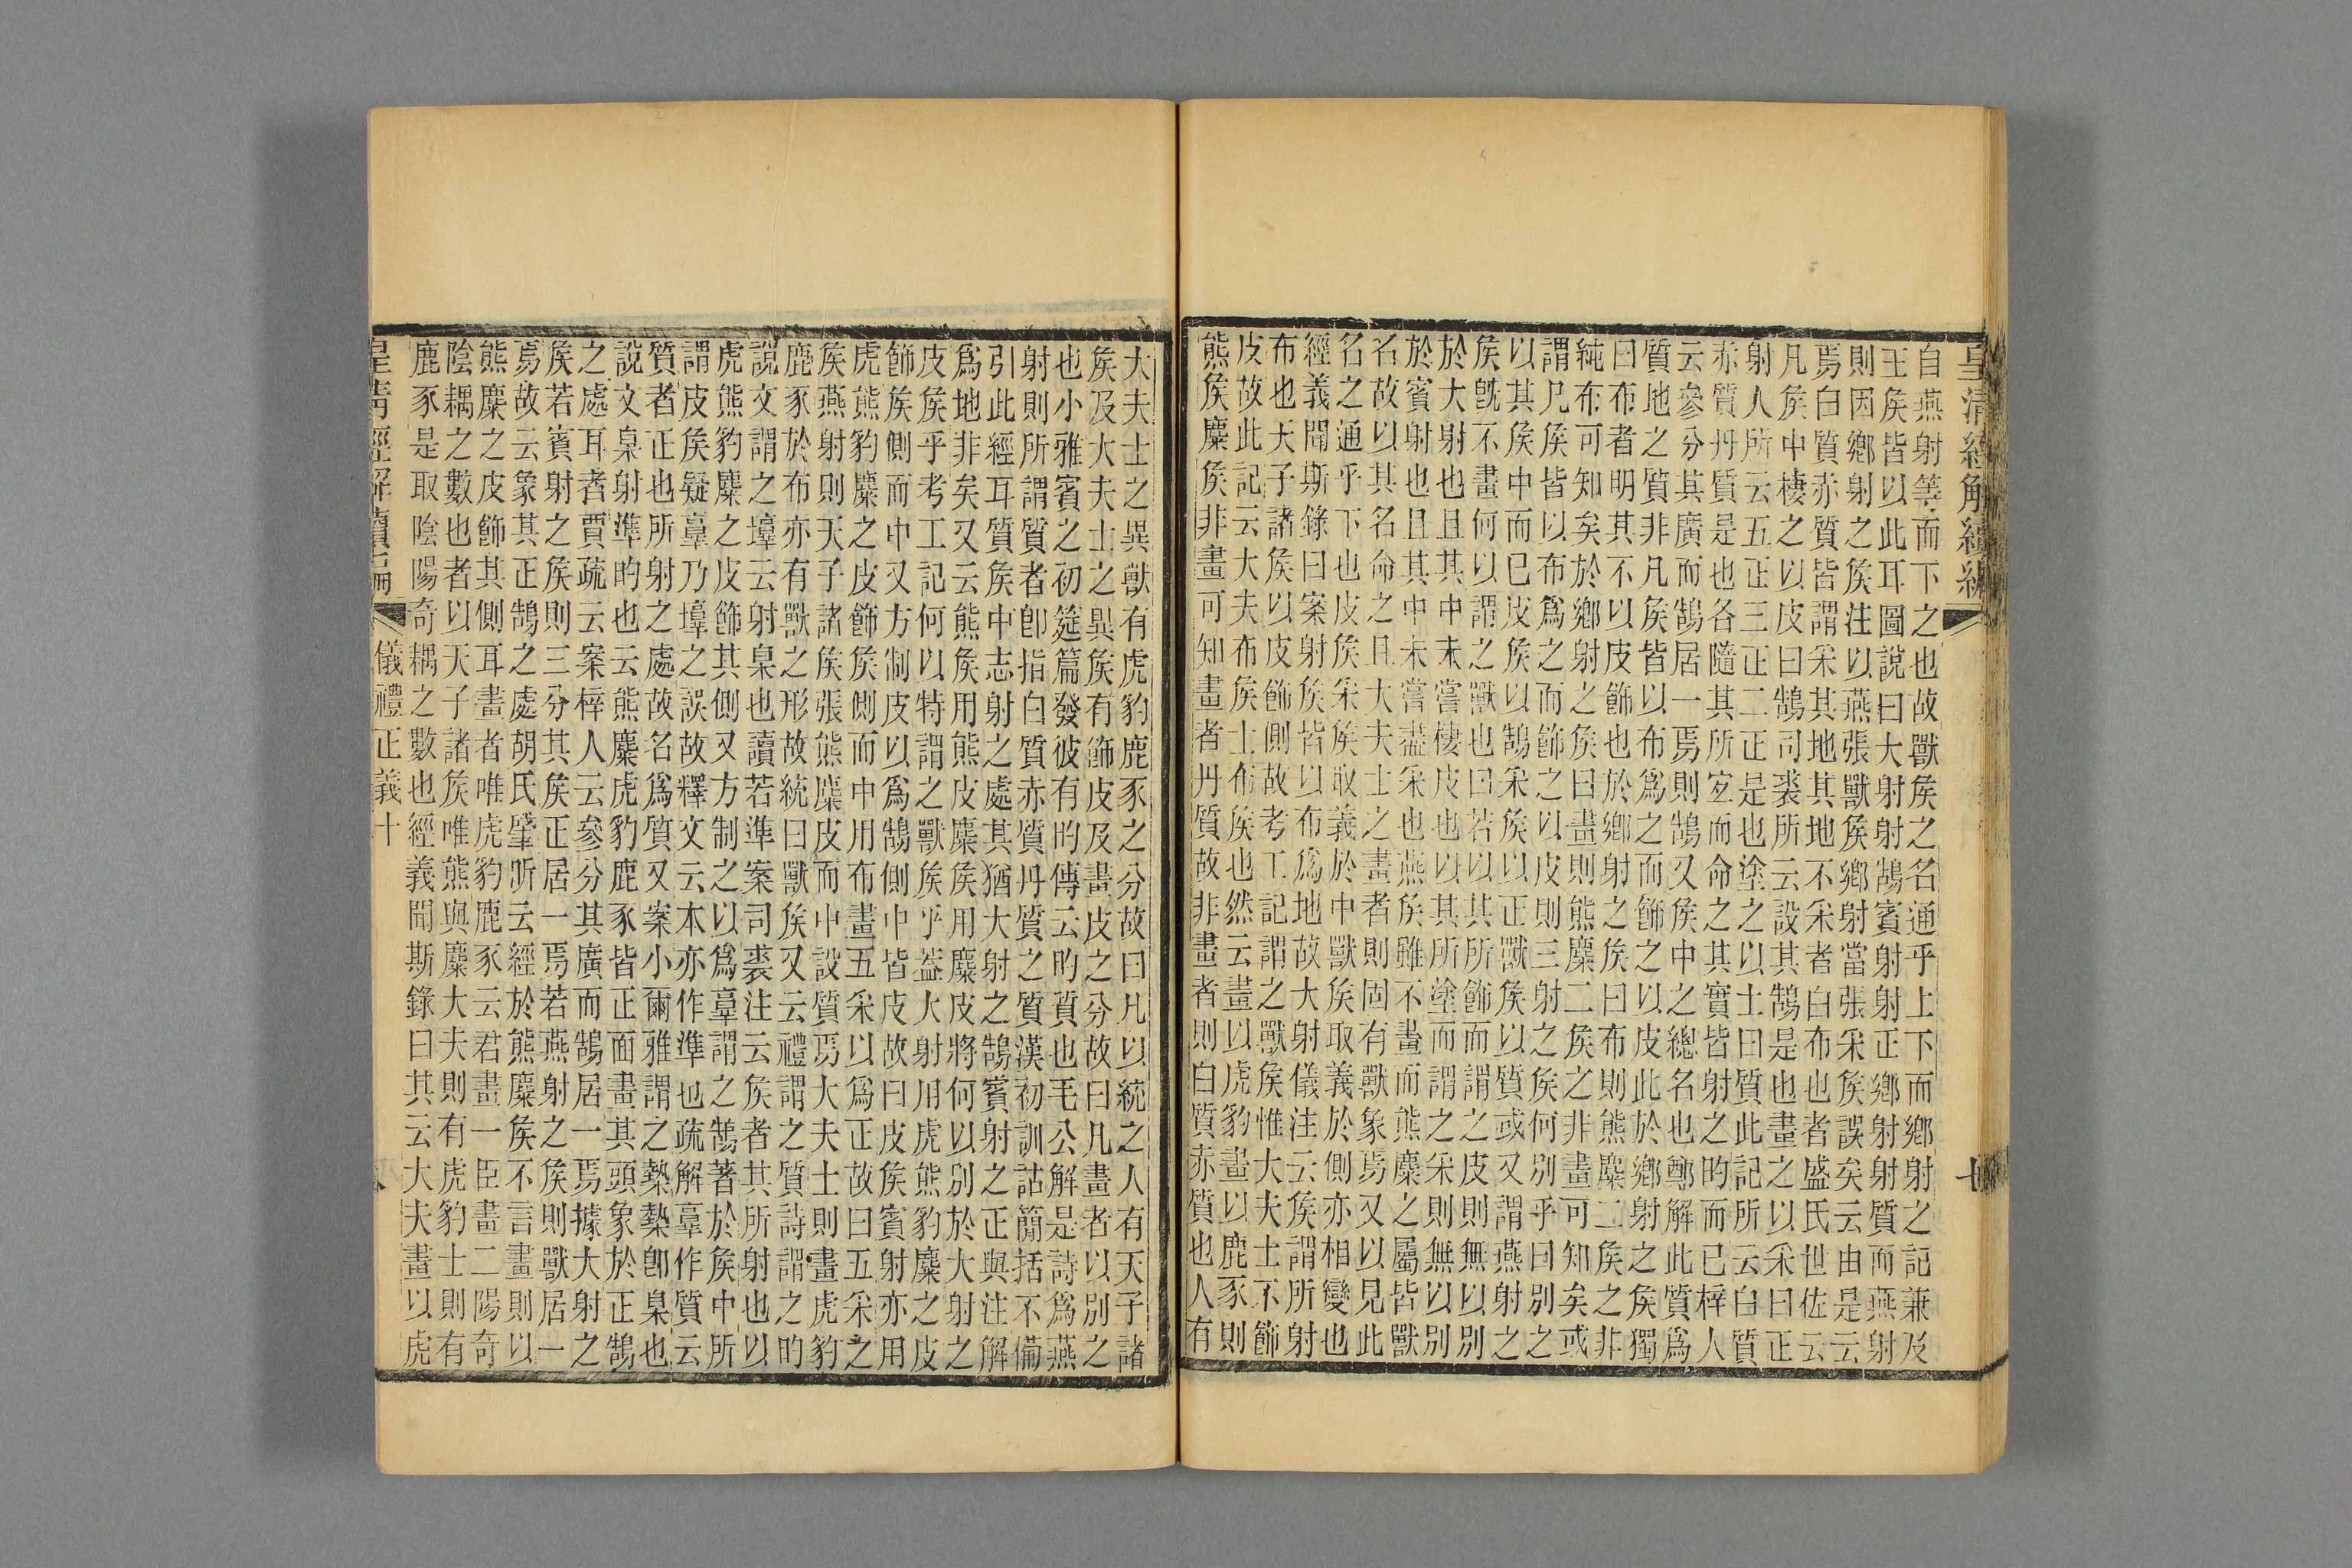 皇清經解續編 七
自燕射等而下之也故獸侯之名通乎上下而鄉射之記兼及
王侯皆以此耳圖說曰大射射鵠賓射射正鄉射射質而燕射
則因鄉射之侯注以燕張獸侯鄉射當張采侯誤矣云由是云
焉白質赤質皆謂采其地其地不采者白布也者盛氏世佐云
凡侯中棲之以皮曰鵠司裘所云設其鵠是也畫之以采曰正
射人所云五正三正二正是也塗之以土曰質此記所云白質
赤質丹質是也各隨其所宜而命之其實皆射之的而已梓人
云參分其廣而鵠居一焉則鵠又侯中之總名也鄭解此質爲
質地之質非凡侯皆以布爲之而飾之以皮此於鄉射之侯獨
曰布者明其不以皮飾也於鄉射之侯曰布則熊麋二侯之非
純布可知矣於鄉射之侯曰畫則熊麋二侯之非畫可知矣或
謂凡侯皆以布爲之而飾之以皮則三射之侯何別乎曰別之
以其侯中而已皮侯以鵠采侯以正獸侯以質或又謂燕射之
侯旣不畫何以謂之獸也曰若以其所飾而謂之皮則無以別
於大射也且其中未嘗棲皮也以其所塗而謂之采則無以別
於賓射也且其中未嘗盡采也燕侯雖不畫而熊麋之屬皆獸
名故以其名命之且大夫士之畫者則固有獸象焉又以見此
名之通乎下也皮侯采侯取義於中獸侯取義於側亦相變也
經義聞斯錄曰案射侯皆以布爲地故大射儀注云侯謂所射
布也天子諸侯以皮飾側故考工記謂之獸侯惟大夫士不飾
皮故此記云大夫布侯士布侯也然云畫以虎豹畫以鹿豕則
熊侯麋侯非畫可知畫者丹質故非畫者則白質赤質也人有
大夫士之異獸有虎豹鹿豕之分故曰凡以統之人有天子諸
侯及大夫士之異侯有飾皮及畫皮之分故曰凡畫者以別之
也小雅賓之初筵篇發彼有的傳云的質也毛公解是詩爲燕
射則所謂質者卽指白質赤質丹質之質漢初訓詁簡括不備
引此經耳質侯中志射之處其猶大射之鵠賓射之正與注解
爲地非矣又云熊侯用熊皮麋侯用麋皮將何以別於大射之
皮侯乎考工記何以特謂之獸侯乎蓋大射用虎熊豹麋之皮
飾侯側而中又方制皮以爲鵠側中皆皮故曰皮侯賓射亦用
虎熊豹麋之皮飾侯側而中用布畫五采以爲正故曰五采之
侯燕射則天子諸侯張熊麋皮而中設質焉大夫士則畫虎豹
鹿豕於布亦有獸之形故統曰獸侯又云禮謂之質詩謂之的
說文謂之𡐨云射臬也讀若準案司裘注云侯者其所射也以
虎熊豹麋之皮飾其側又方制之以爲辜謂之鵠著於侯中所
謂皮侯疑辜乃𡐨之誤故釋文云本亦作準也疏解辜作質云
質者正也所射之處故名爲質又案小爾雅謂之槷槷卽臬也
說文臬射準的也云熊麋虎豹鹿豕皆正面畫其頭象於正鵠
之處耳者賈疏云案梓人云參分其廣而鵠居一焉據大射之
侯若賓射之侯則三分其侯正居一焉若燕射之侯則獸居一
焉故云象其正鵠之處胡氏肇昕云經於熊麋侯不言畫則以
熊麋之皮飾其側耳畫者唯虎豹鹿豕云君畫一臣畫二陽奇
陰耦之數也者以天子諸侯唯熊與麋大夫則有虎豹士則有
鹿豕是取陰陽奇耦之數也經義聞斯錄曰其云大夫畫以虎
皇清經解續編 儀禮正義十